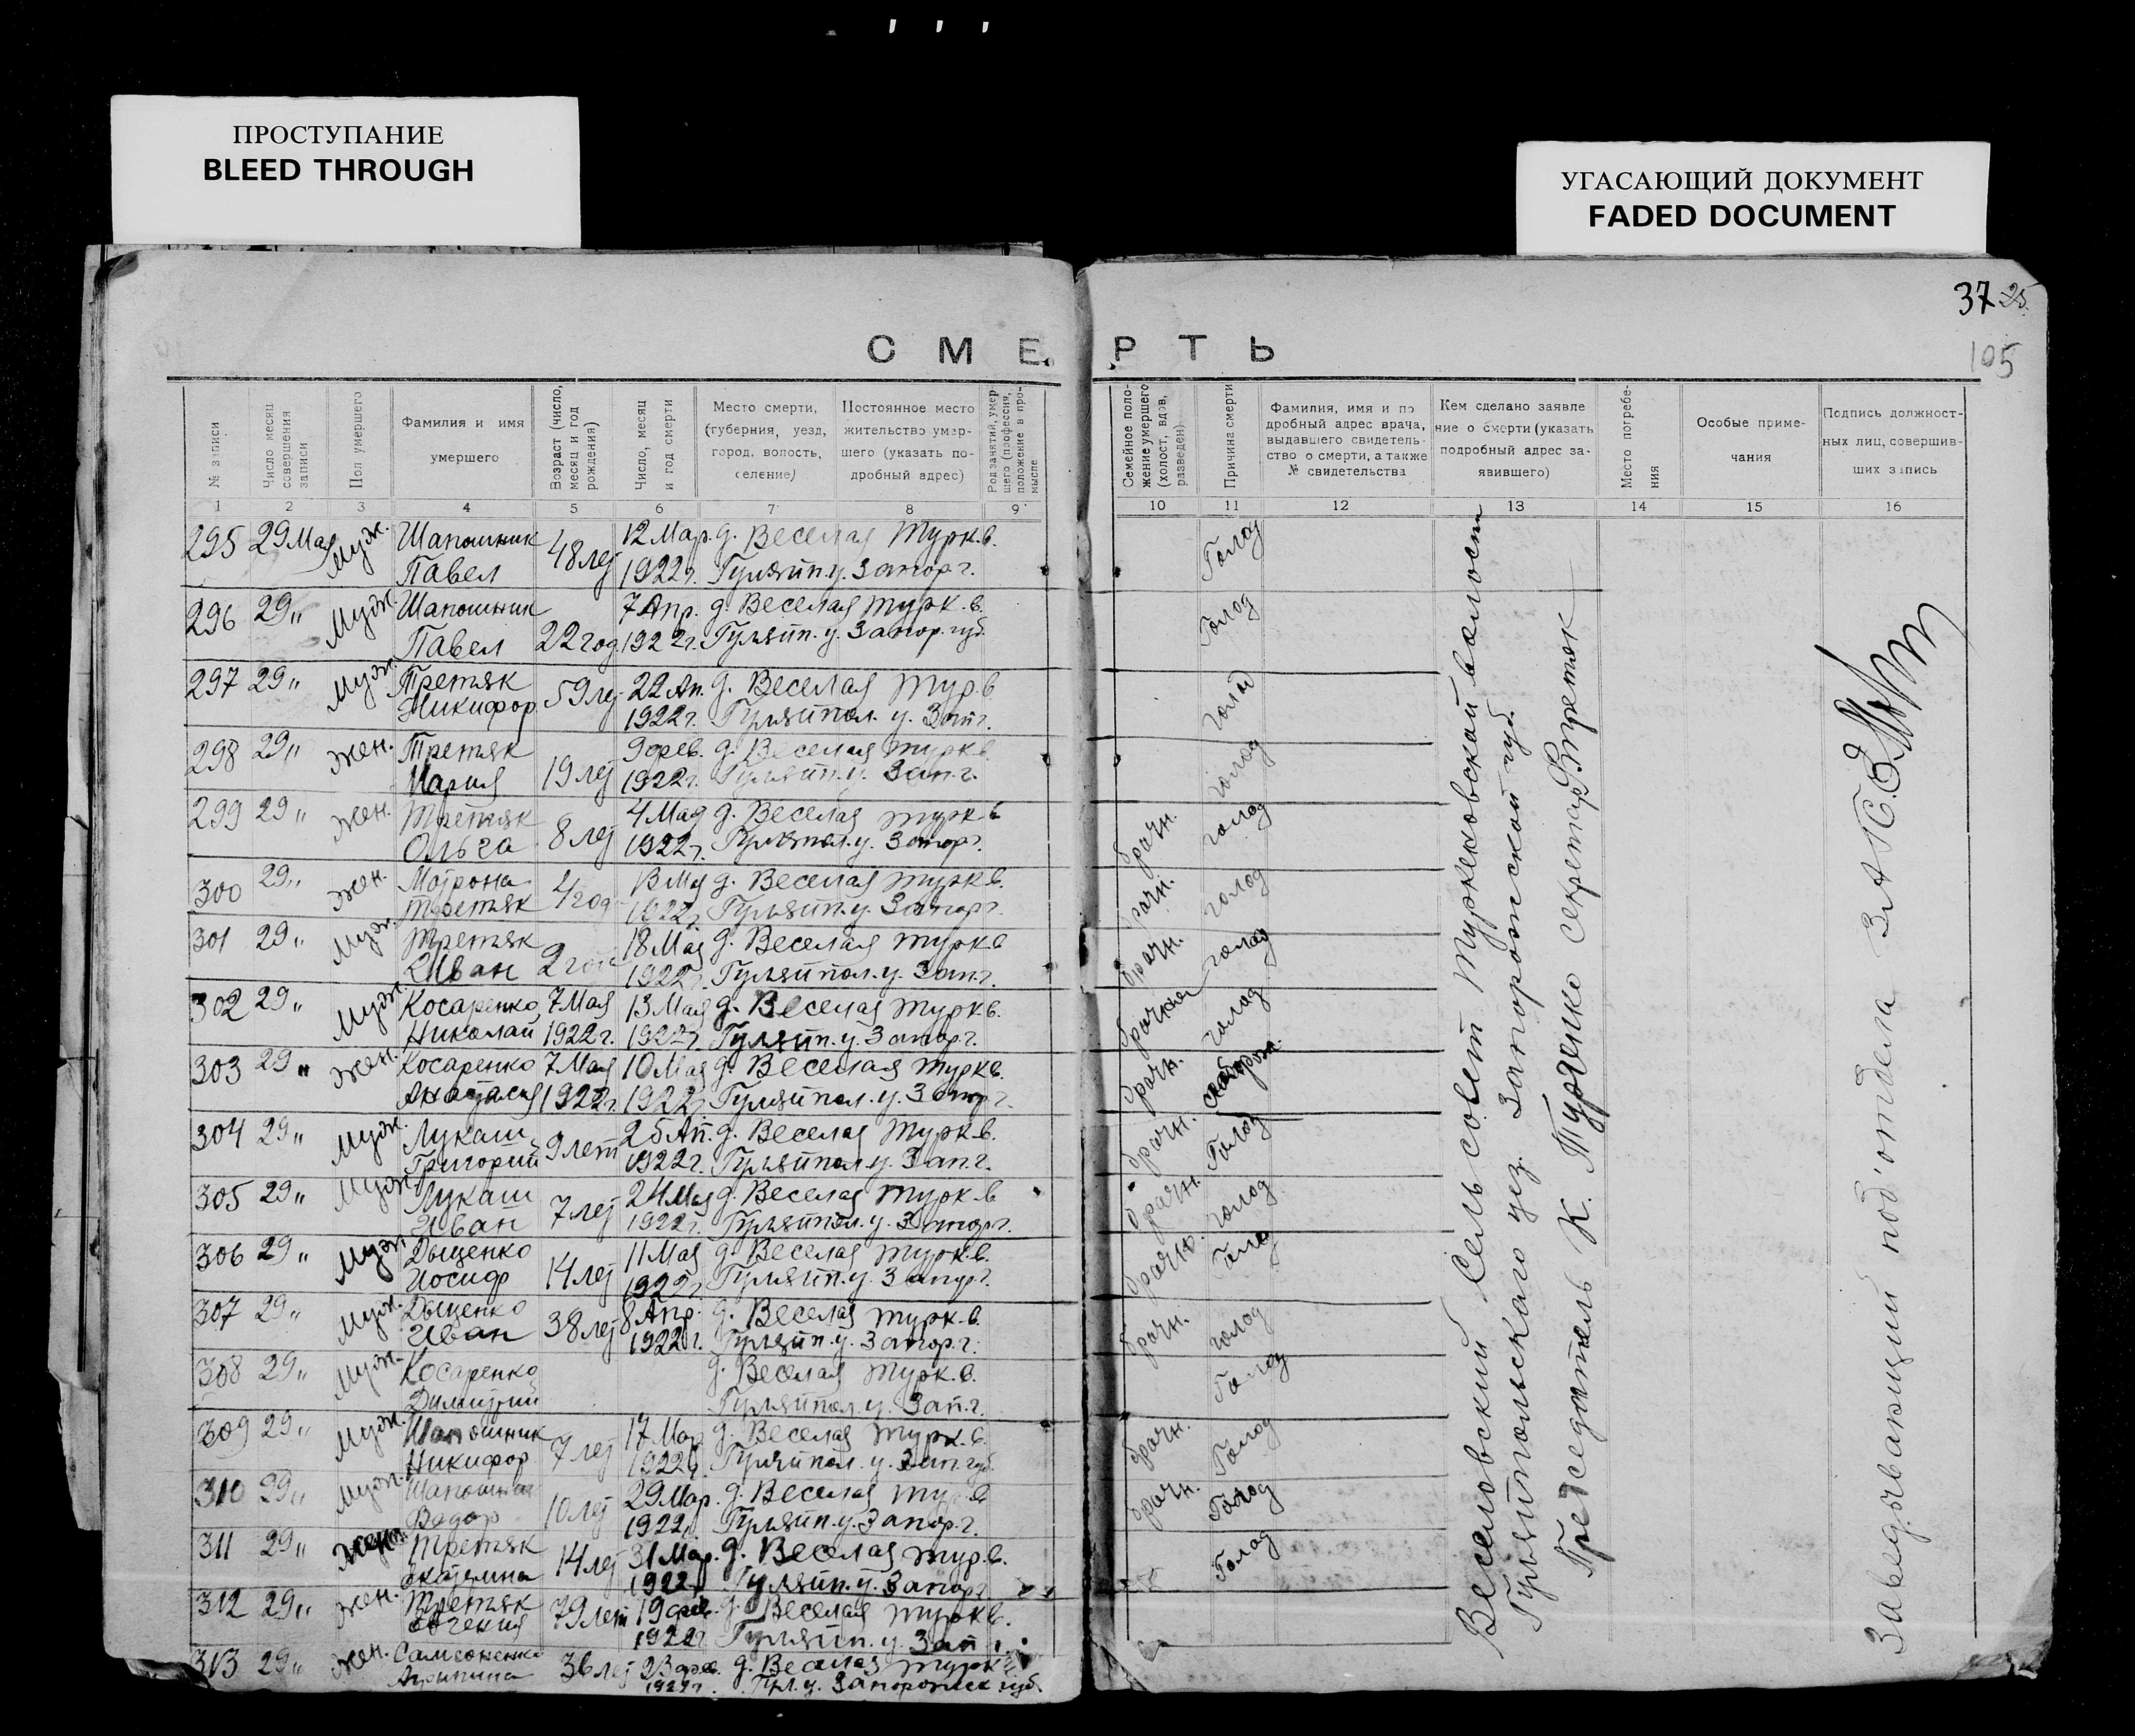 ПРОСТУПАНИЕ
BLEED THROUGH
УГАСАЮЩИЙ ДОКУМЕНТ
FADED DOCUMENT
37 25
105
СМЕРТЬ
№ записи
Число месяц совершения записи
Пол умершего
Фамилия и имя
умершего
Возраст (число, месяц и год рождения)
Число, месяц и год смерти
Место смерти,
(губерния, уезд,
город, волость,
селение)
Постоянное место
жительство умер-
шего (указать по-
дробный адрес)
Род занятий, умер-
шего (профессия,
положение в про-
мысле
Семейное поло-
жение умершего
(холост, вдов,
разведен)
Причина смерти
Фамилия, имя и по
дробный адрес врача,
выдавшего свидетель-
ство о смерти, а также
№ свидетельства
Кем сделано заявле
ние о смерти (указать
подробный адрес за-
явившего)
Место погребе-
ния
Особые приме-
чания
Подпись должност-
ных лиц, совершив-
ших запись
1 2 3 4 5 6 7 8 9 10 11 12 13 14 15 16
295 29 Мая Муж. Шапошник 48 лет 12 Мар. д. Веселая Турк.в. Голод
Павел 1922г. Гуляйп.у. Запор.г.
296 29 „ Муж. Шапошник 7 Апр. д. Веселая Турк.в. Голод
Павел 22 год. 1922г. Гуляйп.у. Запор.губ.
297 29 „ Муж. Третяк 59 лет 22 Ап. д. Веселая Тур.в голод
Никифор 1922г. Гуляйпол.у. Зап.г.
298 29 „ Жен. Третяк 9 фев. д. Веселая Турк.в голод
Мария 19 лет 1922г. Гуляйп.у. Зап.г.
299 29 „ Жен. Третяк 4 Мая д. Веселая Турк.в брачн. голод
Ольга 8 лет 1922г. Гуляйпол.у. Запор.г.
300 29 „ Жен. Мотрона д. Веселая Турк.в. брачн. голод
Третяк 4 год 1922г. Гуляйп.у. Запор.г.
301 29 „ Муж. Третяк 18 Мая д. Веселая Турк.в брачн. голод
Иван 2 год 1922г. Гуляйпол.у. Зап.г.
302 29 „ Муж. Косаренко 7 Мая 13 Мая д. Веселая Турк.в. голод
Николай 1922г. 1922г. Гуляйп.у. Запор.г.
303 29 „ Жен. Косаренко 7 Мая 10 Мая д. Веселая Турк.в. брачн.
Анастасия 1922г. 1922г. Гуляйпол.у. Запор.г.
304 29 „ Муж. Лукаш 9 лет 25 Ап. д. Веселая Турк.в. брачн. Голод
Григорий 1922г. Гуляйпол.у. Зап.г.
305 29 „ Муж. Лукаш 7 лет 24 Мая д. Веселая Турк.в брачн. голод
Иван 1922г. Гуляйпол.у. Запор.г.
306 29 „ Муж. Дыщенко 14 лет 11 Мая д. Веселая Турк.в.
Иосиф 1922г. Гуляйп.у. Запор.г.
307 29 „ Муж. Дыщенко 38 лет 8 Апр. д. Веселая Турк.в. брачн. голод
Иван 1922г. Гуляйп.у. Запор.г.
308 29 „ Муж. Косаренко д. Веселая Турк.в. Голод
Димитрий Гуляйпол.у. Зап.г.
309 29 „ Муж. Шапошник 7 лет 17 Мар. д. Веселая Турк.в. брачн. Голод
Никифор 1922г. Гуляйпол.у. Зап.губ.
310 29 „ Муж. Шапошник 10 лет 29 Мар. д. Веселая Тур.в брачн. Голод
1922г. Гуляйп.у. Запор.г.
311 29 „ Жен. Третяк 14 лет 31 Мар. д. Веселая Тур.в. Голод
Екатерина 1922г. Гуляйп.у. Запор.г.
312 29 „ Жен. Третяк 79 лет 19 фев. д. Веселая Турк.в.
Евгения 1922г. Гуляйп.у. Зап.
313 29 „ Жен. Самсоненко 36 лет 23 фев. д. Веселая Турк.
1922г. Гул.у. Запорожск губ.
Веселовский Сельсовет Туркеновской волости
Гуляйпольскаго уез. Запорожской губ.
Председатель К. Турченко Секретарь Третяк
Заведывающий под'отдела ЗАГС